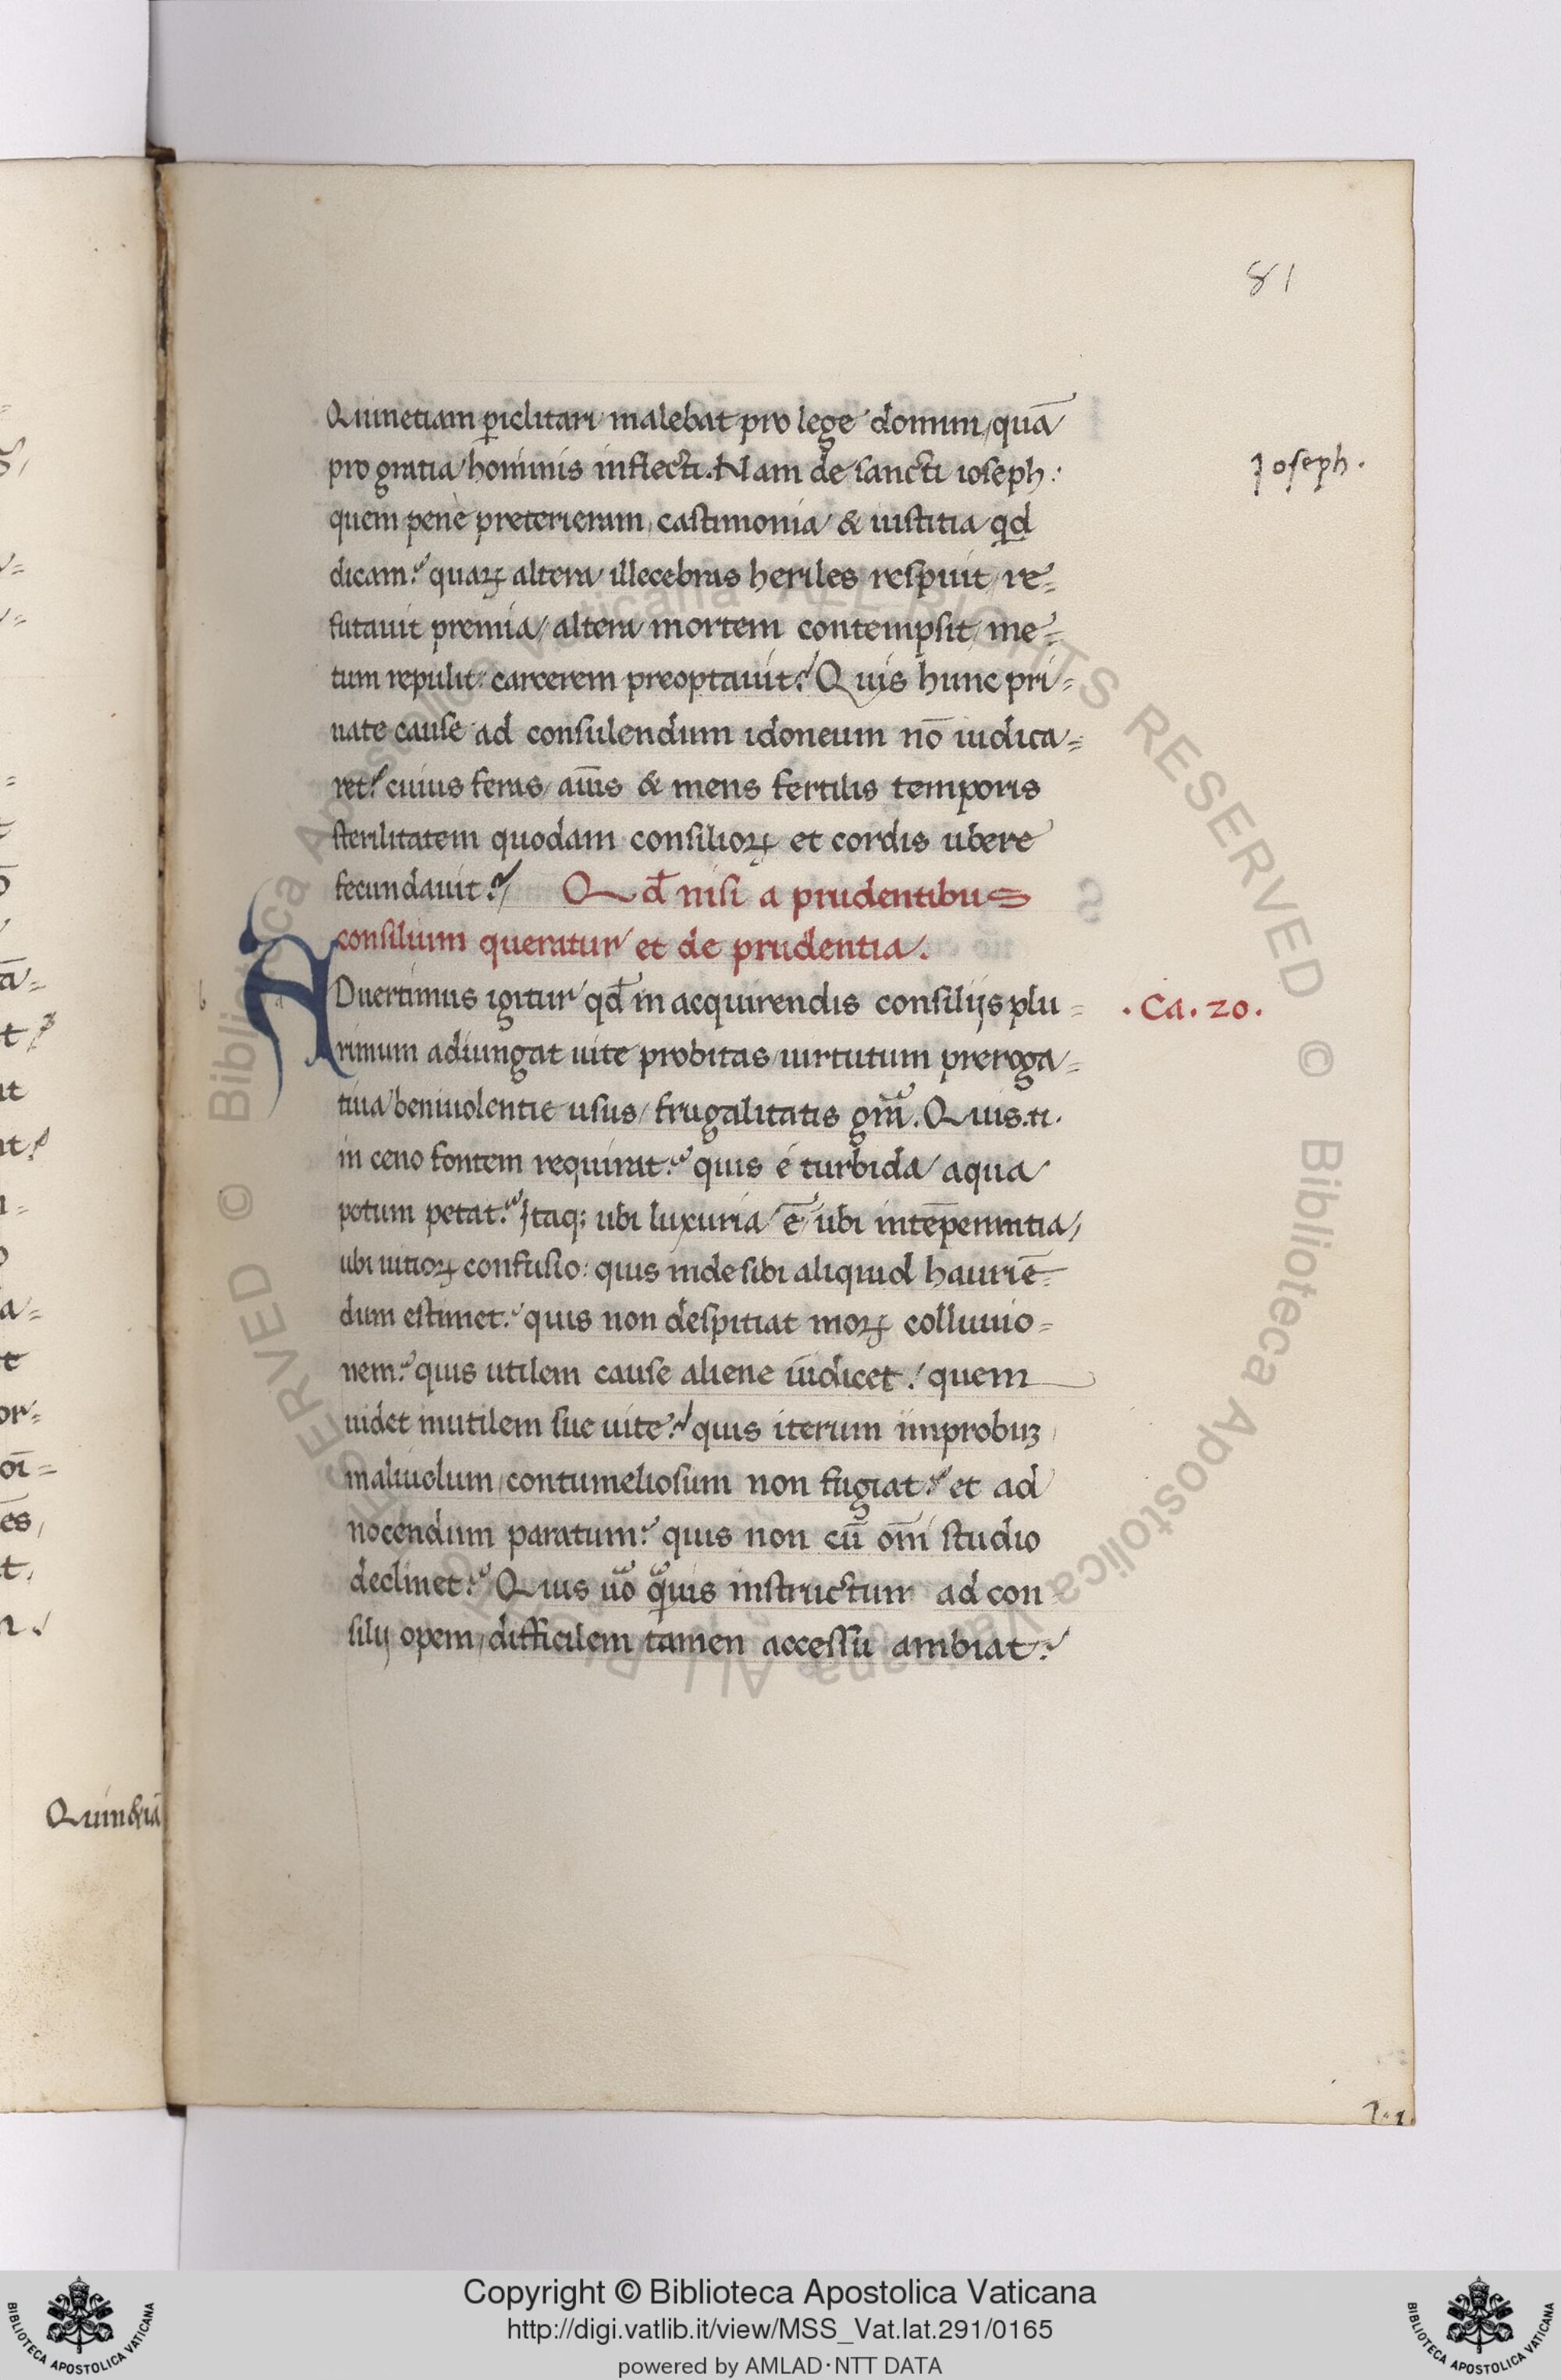 81
Quinetiam ꝑiclitari malebat pro lege domini, quā
pro gratia hominis inflecti. Nam de sancti ioseph:
Joseph.
quem pene preterieram, castimonia & iustitia qd
dicam? quaꝝ altera illecebras heriles respuit, re=
futauit premia, altera mortem contempsit, me=
tum repulit: carcerem preoptauit? Quis hunc pri=
uate cause ad consulendum idoneum nō iudica=
ret? cuius feras, aīus & mens fertilis temporis
sterilitatem quodam consilioꝝ et cordis ubere
fecundauit? Qd̄ nisi a prudentibus
consilium queratur et de prudentia.
ADuertimus igitur qd̄ in acquirendis consilijs plu=
.Ca. 20.
rimum adiungat uite probitas, uirtutum preroga=
tiua beniuolentie usus, frugalitatis gr̄a. Quis.n.
in ceno fontem requirat? quis e turbida aqua
potum petat? Itaq; ubi luxuria ē, ubi intēperantia,
ubi uitioꝝ confusio: quis inde sibi aliquid hauriē=
dum estimet? quis non despitiat moꝝ colluuio=
nem? quis utilem cause aliene iudicet? quem
uidet inutilem sue uite? quis iterum improbuꝫ
maliuolum, contumeliosum non fugiat? et ad
nocendum paratum? quis non cū om̄i studio
declinet? Quis uō q̄uis instructum ad con
silij opem, difficilem tamen accessū ambiat?
Quinetiā
Copyright © Biblioteca Apostolica Vaticana
http://digi.vatlib.it/view/MSS_Vat.lat.291/0165
powered by AMLAD·NTT DATA
BIBLIOTECA APOSTOLICA VATICANA
BIBLIOTECA APOSTOLICA VATICANA